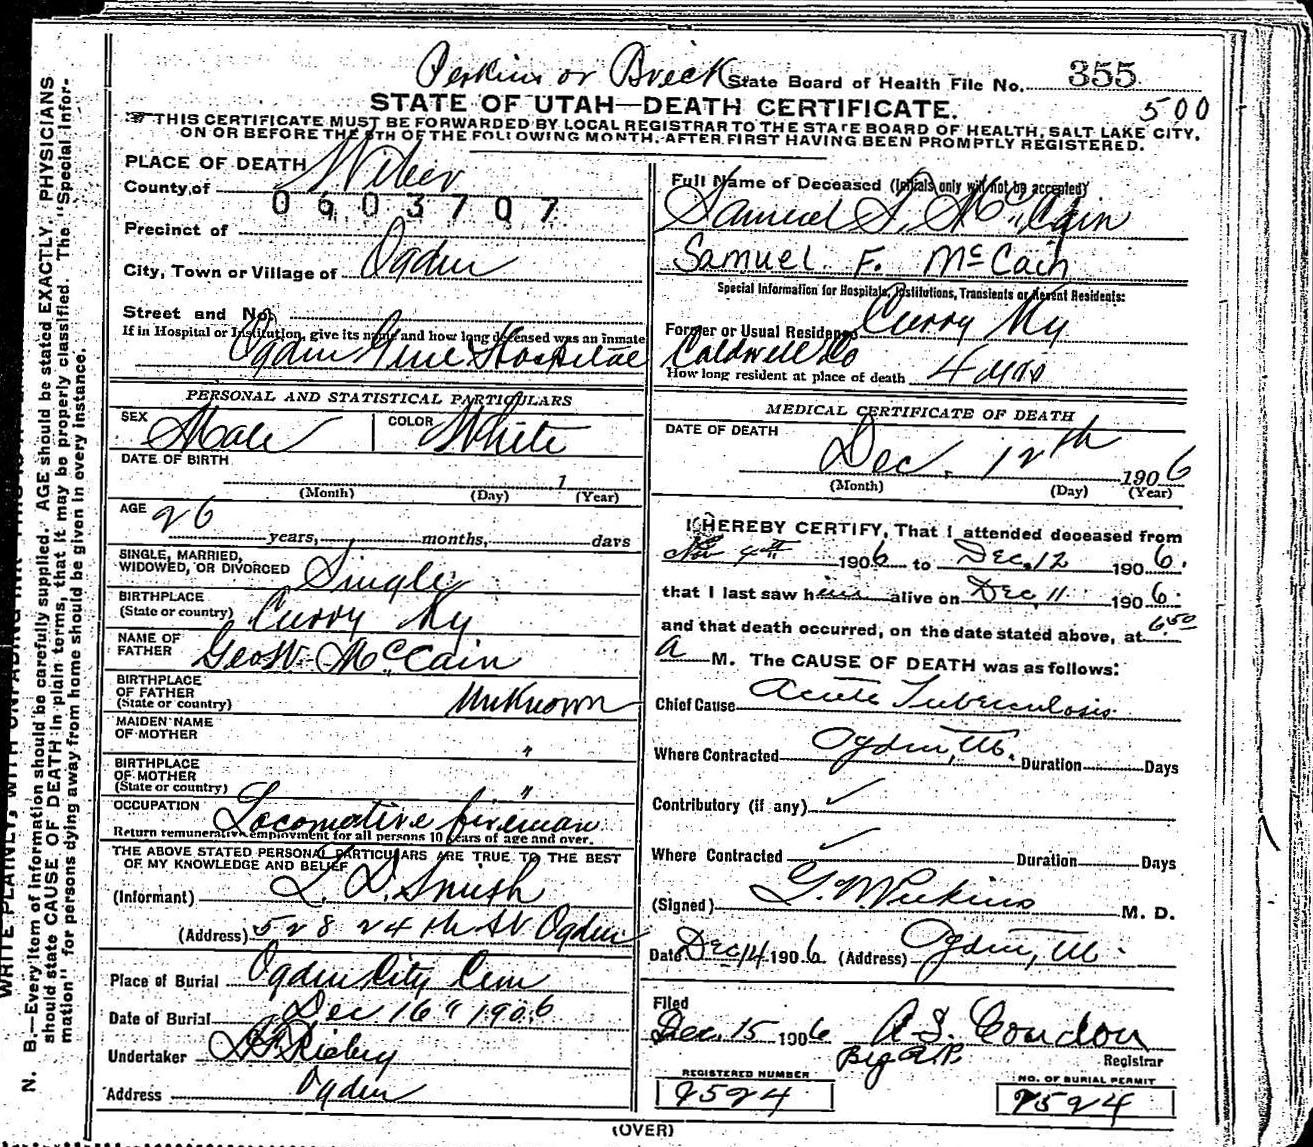 Perkins or Brick State Board of Health File No. 355
STATE OF UTAH—DEATH CERTIFICATE. 500
THIS CERTIFICATE MUST BE FORWARDED BY LOCAL REGISTRAR TO THE STATE BOARD OF HEALTH, SALT LAKE CITY,
ON OR BEFORE THE 5TH OF THE FOLLOWING MONTH, AFTER FIRST HAVING BEEN PROMPTLY REGISTERED.
PLACE OF DEATH
County of Weber
0603707
Precinct of
City, Town or Village of Ogden
Street and No.
If in Hospital or Institution, give its name and how long deceased was an inmate
Ogden Gene Hospital
PERSONAL AND STATISTICAL PARTICULARS
SEX Male COLOR White
DATE OF BIRTH
1
(Month) (Day) (Year)
AGE 26
years, months, days
SINGLE, MARRIED,
WIDOWED, OR DIVORCED Single
BIRTHPLACE
(State or country) Curry Ky
NAME OF
FATHER Geo W. McCain
BIRTHPLACE
OF FATHER
(State or country) Unknown
MAIDEN NAME
OF MOTHER "
BIRTHPLACE
OF MOTHER
(State or country) "
OCCUPATION Locomotive fireman
Return remunerative employment for all persons 10 years of age and over.
THE ABOVE STATED PERSONAL PARTICULARS ARE TRUE TO THE BEST
OF MY KNOWLEDGE AND BELIEF
(Informant) L. D. Smish
(Address) 528 24th St Ogden
Place of Burial Ogden City Cem
Date of Burial Dec 16" 1906
Undertaker
Address Ogden
Full Name of Deceased (Initials only will not be accepted)
Samuel F. McCain
Samuel F. McCain
Special Information for Hospitals, Institutions, Transients or Recent Residents:
Former or Usual Residence Curry Ky
Caldwell Co
How long resident at place of death 4 mos
MEDICAL CERTIFICATE OF DEATH
DATE OF DEATH
Dec. 12th 1906
(Month) (Day) (Year)
I HEREBY CERTIFY, That I attended deceased from
Nov 4th 1906 to Dec. 12 1906.
that I last saw him alive on Dec. 11 1906.
and that death occurred, on the date stated above, at 6 50
a M. The CAUSE OF DEATH was as follows:
Chief Cause Acute Tuberculosis
Where Contracted Ogden, Ut. Duration Days
Contributory (if any) ✓
Where Contracted ✓ Duration Days
(Signed) G. W. Perkins M. D.
Date Dec 14 1906 (Address) Ogden, Ut.
Filed
Dec. 15 1906 A S Condon
Registrar
REGISTERED NUMBER
2524
NO. OF BURIAL PERMIT
2524
(OVER)
N. B.—Every item of information should be carefully supplied. AGE should be stated EXACTLY. PHYSICIANS
should state CAUSE OF DEATH in plain terms, that it may be properly classified. The "Special Infor-
mation" for persons dying away from home should be given in every instance.